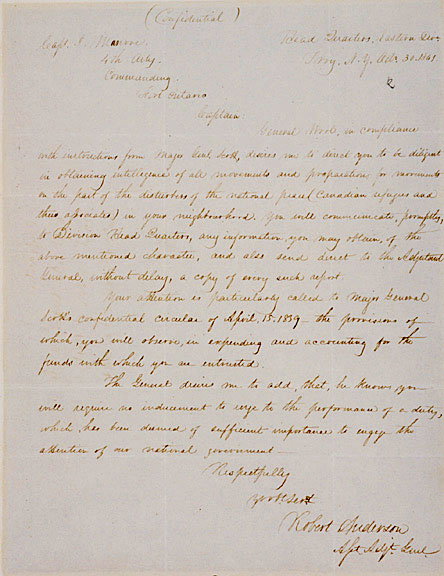 (Confidential)
Capt. J. Monroe Head Quarters, Eastern Div.
4th Arty. Troy, N.Y. Octr. 30. 1841
Commanding.
Fort Ontario
Captain:
General Wool, in compliance
with instructions from Major Genl. Scott, desires me to direct you to be diligent
in obtaining intelligence of all movements and preparations for movements
on the part of the disturbers of the national peace (Canadian refugees and
their associates) in your neighbourhood. You will communicate, promptly,
to Division Head Quarters, any information, you may obtain, of the
above mentioned character, and also send direct to the Adjutant
General, without delay, a copy of every such report.
Your attention is particularly called to Major General
Scott's confidential circular of April, 15. 1839 – the provisions of
which, you will observe, in expending and accounting for the
funds with which you are entrusted.
The General desires me to add, that, he knows, you
will require no inducement to urge to the performance of a duty,
which, has been deemed of sufficient importance to engage the
attention of our national government –
Respectfully
Yr Ob Servt
Robert Anderson
Asst Adjt. Genl